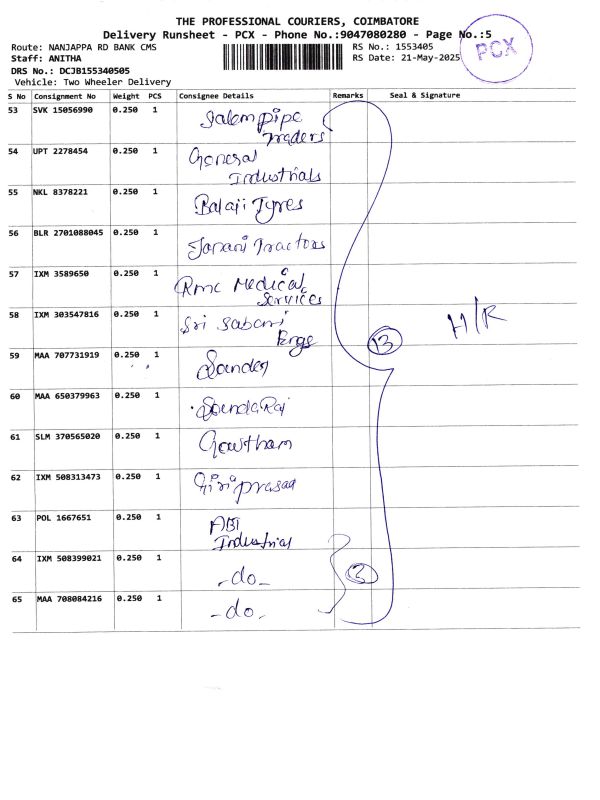 THE PROFESSIONAL COURIERS, COIMBATORE
Delivery Runsheet - PCX - Phone No.:9047080280 - Page No.:5
Route: NANJAPPA RD BANK CMS
RS No.: 1553405
Staff: ANITHA
RS Date: 21-May-2025
DRS No.: DCJB155340505
Vehicle: Two Wheeler Delivery
PCX
S No Consignment No Weight PCS Consignee Details Remarks Seal & Signature
53 SVK 15056990 0.250 1 Salem pipe
Traders
54 UPT 2278454 0.250 1 General
Industrials
55 NKL 8378221 0.250 1 Balaji Tyres
56 BLR 2701088045 0.250 1 Tractors
57 IXM 3589650 0.250 1 Rmc Medical
Services
58 IXM 303547816 0.250 1 Sri Sabari
Engs
59 MAA 707731919 0.250 1
13
H/R
60 MAA 650379963 0.250 1 SoundaRaj
61 SLM 370565020 0.250 1 Gowtham
62 IXM 508313473 0.250 1 Giriprasad
63 POL 1667651 0.250 1 ABI
Industrial
64 IXM 508399021 0.250 1 -do-
2
65 MAA 708084216 0.250 1 -do-